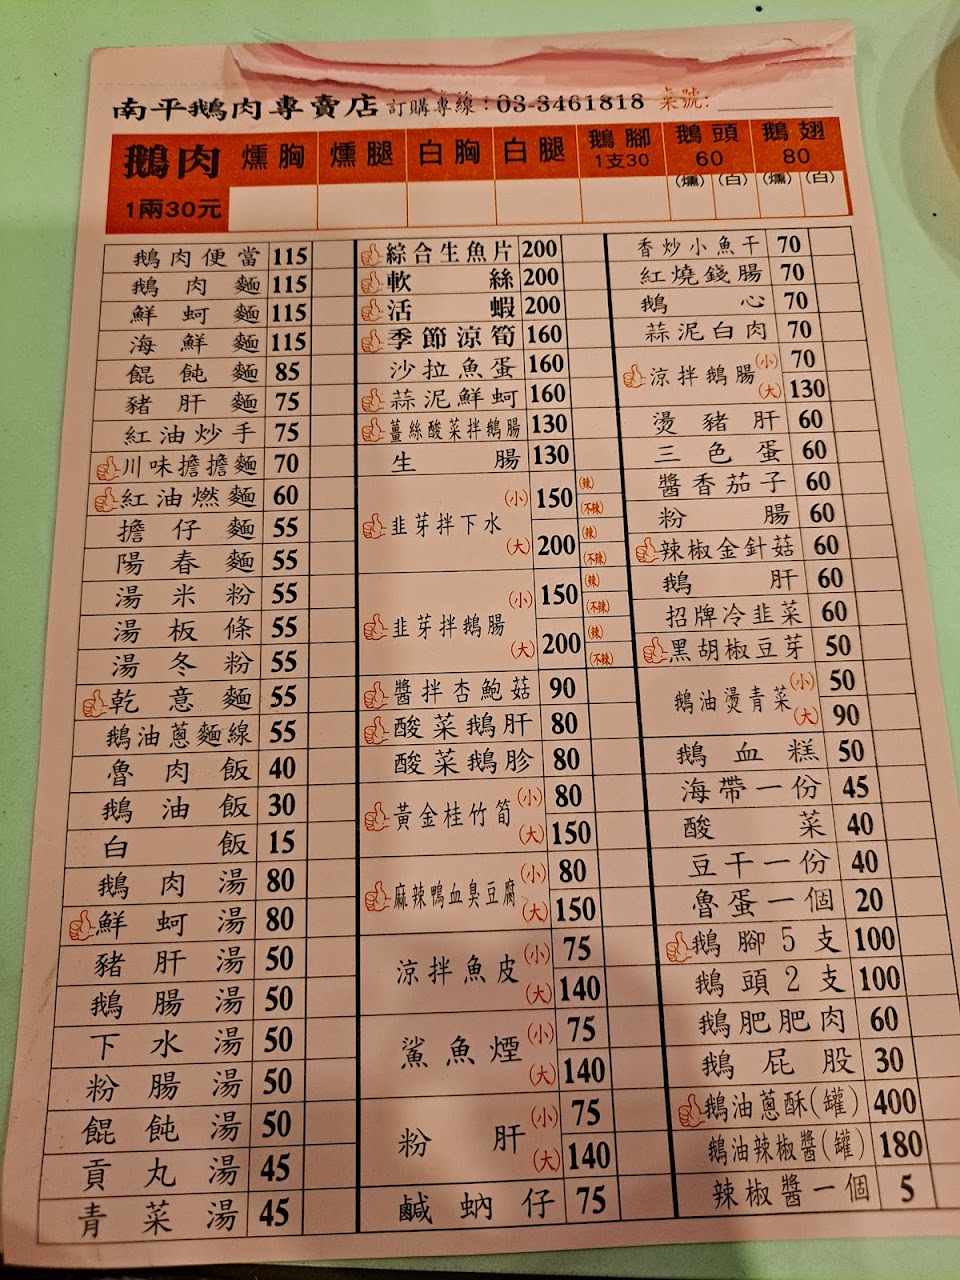 南平鵝肉專賣店 訂購專線：03-3461818 桌號:
鵝肉 1兩30元
燻胸
燻腿
白胸
白腿
鵝腳 1支30
鵝頭 60 (燻) (白)
鵝翅 80 (燻) (白)
鵝肉便當 115
鵝肉麵 115
鮮蚵麵 115
海鮮麵 115
餛飩麵 85
豬肝麵 75
紅油炒手 75
川味擔擔麵 70
紅油燃麵 60
擔仔麵 55
陽春麵 55
湯米粉 55
湯板條 55
湯冬粉 55
乾意麵 55
鵝油蔥麵線 55
魯肉飯 40
鵝油飯 30
白飯 15
鵝肉湯 80
鮮蚵湯 80
豬肝湯 50
鵝腸湯 50
下水湯 50
粉腸湯 50
餛飩湯 50
貢丸湯 45
青菜湯 45
綜合生魚片 200
軟絲 200
活蝦 200
季節涼筍 160
沙拉魚蛋 160
蒜泥鮮蚵 160
薑絲酸菜拌鵝腸 130
生腸 130
韭芽拌下水 (小) 150 (辣) (不辣)
(大) 200 (辣) (不辣)
韭芽拌鵝腸 (小) 150 (辣) (不辣)
(大) 200 (辣) (不辣)
醬拌杏鮑菇 90
酸菜鵝肝 80
酸菜鵝胗 80
黃金桂竹筍 (小) 80
(大) 150
麻辣鴨血臭豆腐 (小) 80
(大) 150
涼拌魚皮 (小) 75
(大) 140
鯊魚煙 (小) 75
(大) 140
粉肝 (小) 75
(大) 140
鹹蚋仔 75
香炒小魚干 70
紅燒錢腸 70
鵝心 70
蒜泥白肉 70
涼拌鵝腸 (小) 70
(大) 130
燙豬肝 60
三色蛋 60
醬香茄子 60
粉腸 60
辣椒金針菇 60
鵝肝 60
招牌冷韭菜 60
黑胡椒豆芽 50
鵝油燙青菜 (小) 50
(大) 90
鵝血糕 50
海帶一份 45
酸菜 40
豆干一份 40
魯蛋一個 20
鵝腳5支 100
鵝頭2支 100
鵝肥肥肉 60
鵝屁股 30
鵝油蔥酥(罐) 400
鵝油辣椒醬(罐) 180
辣椒醬一個 5